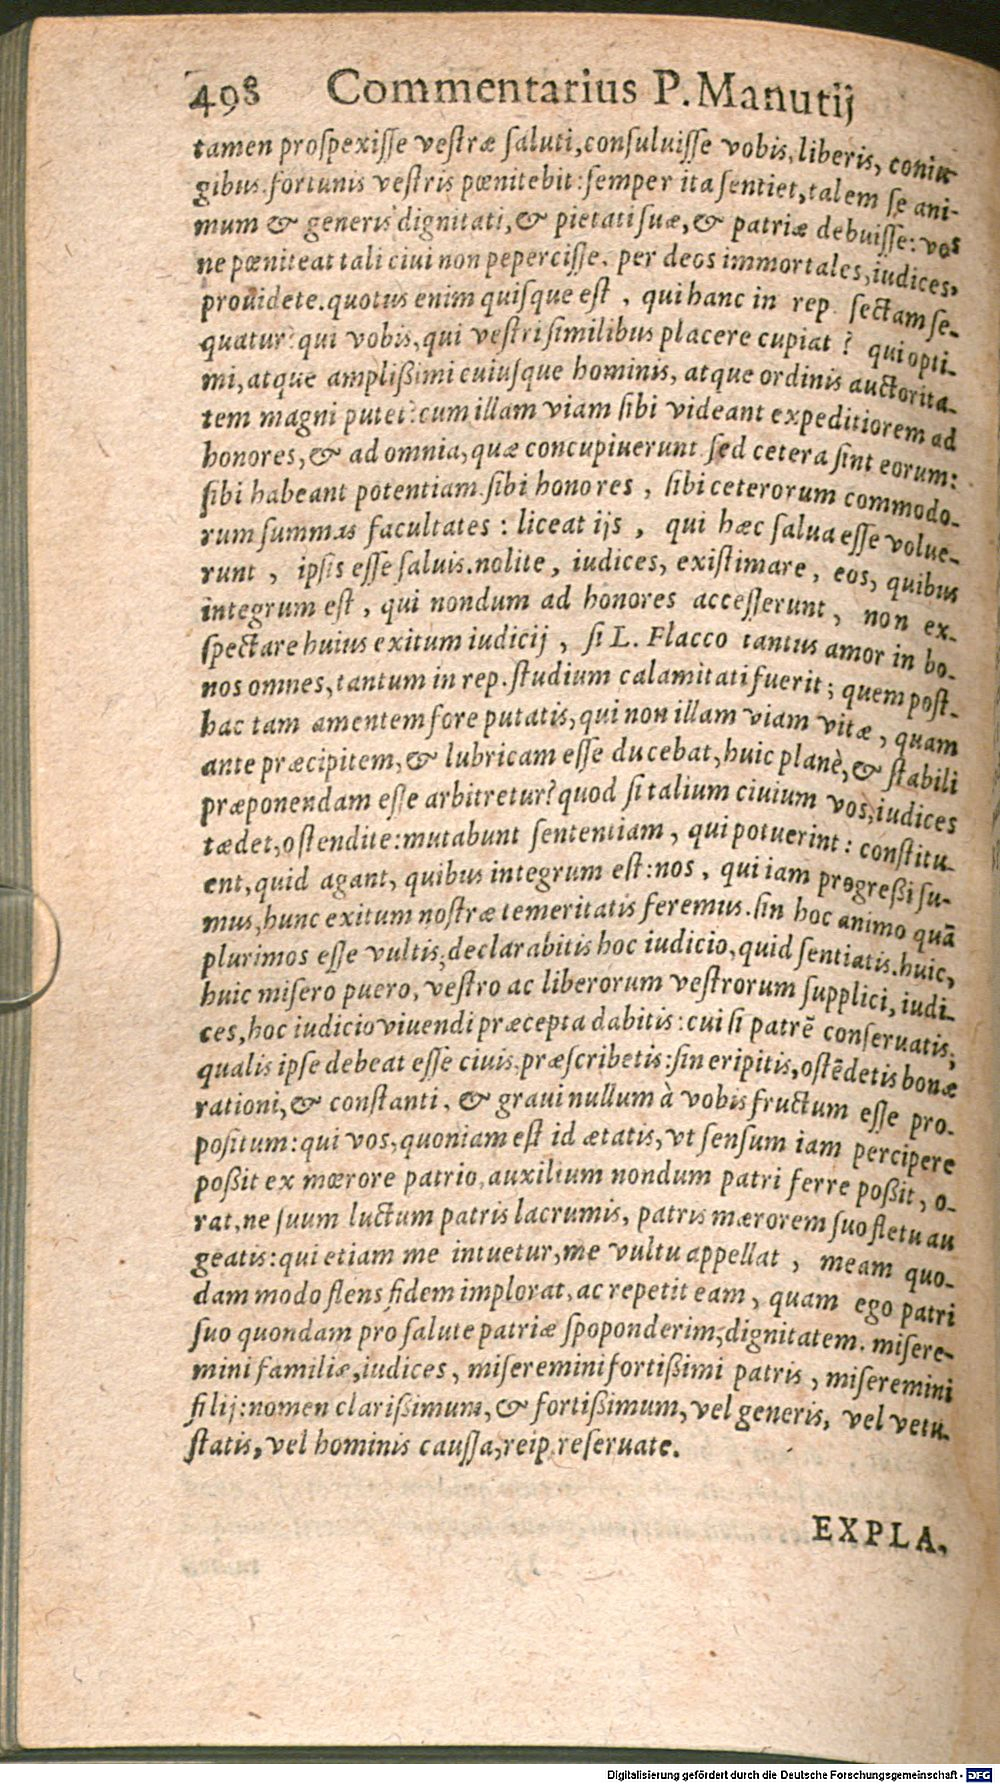 498 Commentarius P. Manutij
tamen prospexisse vestræ saluti, consuluisse vobis, liberis, coniu-
gibus. fortunis vestris pœnitebit: semper ita sentiet, talem se ani-
mum & generis dignitati, & pietati suæ, & patriæ debuisse: vos
ne pœniteat tali ciui non pepercisse. per deos immortales, iudices,
prouidete. quotus enim quisque est, qui hanc in rep. sectam se-
quatur? qui vobis, qui vestri similibus placere cupiat? qui opti-
mi, atque amplißimi cuiusque hominis, atque ordinis auctorita-
tem magni putet? cum illam viam sibi videant expeditiorem ad
honores, & ad omnia, quæ concupiuerunt. sed cetera sint eorum:
sibi habeant potentiam. sibi honores, sibi ceterorum commodo-
rum summas facultates: liceat ijs, qui hæc salua esse volue-
runt, ipsis esse saluis. nolite, iudices, existimare, eos, quibus
integrum est, qui nondum ad honores accesserunt, non ex-
spectare huius exitum iudicij, si L. Flacco tantus amor in bo-
nos omnes, tantum in rep. studium calamitati fuerit; quem post-
hac tam amentem fore putatis, qui non illam viam vitæ, quam
ante præcipitem, & lubricam esse ducebat, huic planè, & stabili
præponendam esse arbitretur? quod si talium ciuium vos, iudices
tædet, ostendite: mutabunt sententiam, qui potuerint: constitu-
ent, quid agant, quibus integrum est: nos, qui iam progreßi su-
mus, hunc exitum nostræ temeritatis feremus. sin hoc animo quā
plurimos esse vultis, declarabitis hoc iudicio, quid sentiatis. huic,
huic misero puero, vestro ac liberorum vestrorum supplici, iudi-
ces, hoc iudicio viuendi præcepta dabitis: cui si patrē conseruatis,
qualis ipse debeat esse ciuis, præscribetis: sin eripitis, ostēdetis bonæ
rationi, & constanti, & graui nullum à vobis fructum esse pro-
positum: qui vos, quoniam est id ætatis, vt sensum iam percipere
poßit ex mœrore patrio, auxilium nondum patri ferre poßit, o-
rat, ne suum luctum patris lacrumis, patris mærorem suo fletu au
geatis: qui etiam me intuetur, me vultu appellat, meam quo-
dam modo flens fidem implorat, ac repetit eam, quam ego patri
suo quondam pro salute patriæ spoponderim, dignitatem. misere-
mini familiæ, iudices, miseremini fortißimi patris, miseremini
filij: nomen clarißimum, & fortißimum, vel generis, vel vetu-
statis, vel hominis caussa, reip. reseruate.
EXPLA-
Digitalisierung gefördert durch die Deutsche Forschungsgemeinschaft - DFG